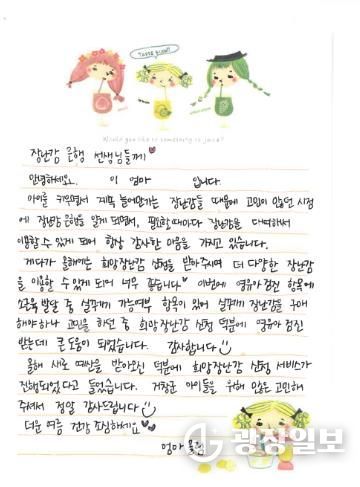 Taste good!
Would you like to something to juice?
장난감 은행 선생님들께♥
안녕하세요. 이 엄마 입니다.
아이를 키우면서 계속 늘어만가는 장난감들 때문에 고민이 많던 시점
에 장난감 은행을 알게 되면서, 필요할때마다 장난감을 대여해서
이용할 수 있게 되어 항상 감사한 마음을 가지고 있습니다.
게다가 올해에는 희망장난감 신청을 받아주시며 더 다양한 장난감
을 이용할 수 있게 되어 너무 좋습니다! 이번에 영유아 검진 항목에
소근육 발달 중 실꿰기 가능여부 항목이 있어 실꿰기 장난감을 구매
해야하나 고민을 하던 중 희망장난감 신청 덕분에 영유아 검진
받는데 큰 도움이 되었습니다. 감사합니다
올해 새로 예산을 받아오신 덕분에 희망장난감 신청 서비스가
진행되었다고 들었습니다. 거창군 아이들을 위해 오늘도 고민해
주셔서 정말 감사드립니다
더운 여름 건강 조심하세요♥
엄마 올림
광장일보